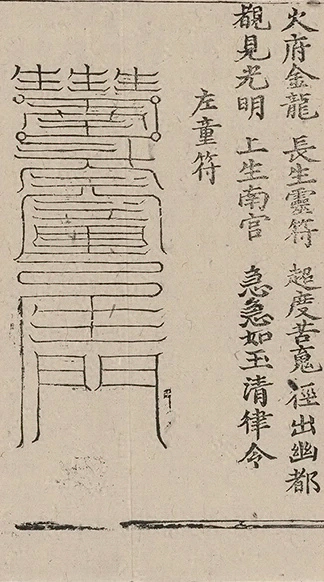 火府金龍 長生靈符 超度苦䰟 徑出幽都
覩見光明 上生南宫 急急如玉清律令
左童符
生生生